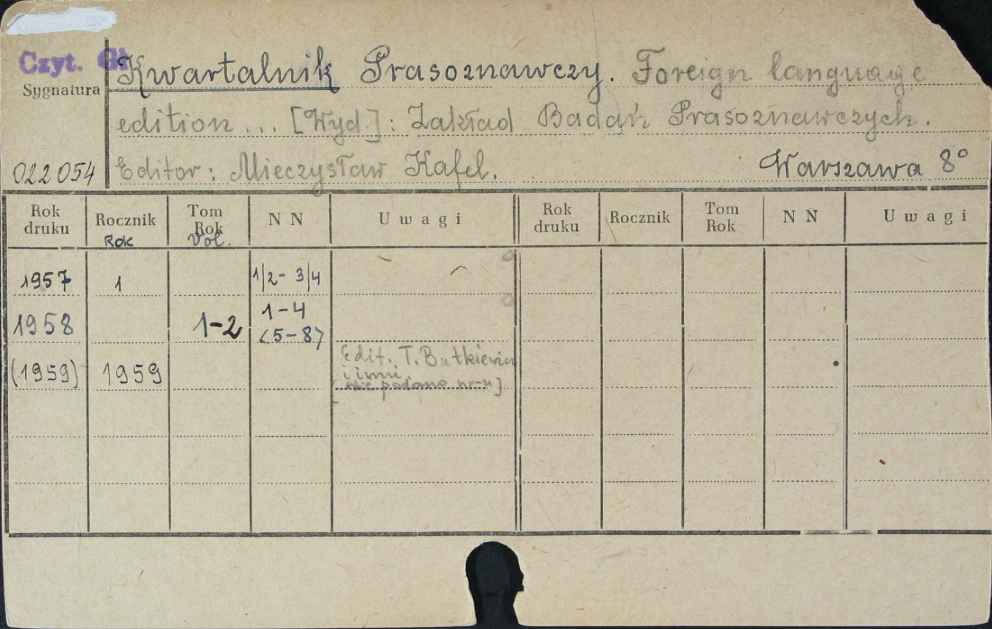 Czyt. Gł.
Sygnatura
022054
Kwartalnik Prasoznawczy. Foreign language
edition... [Wyd.]: Zakład Badań Prasoznawczych.
Editor: Mieczysław Kafel. Warszawa 8°
Rok druku Rocznik Tom Rok N N Uwagi Rok druku Rocznik Tom Rok N N Uwagi
Rok Vol.
1957 1 1/2-3/4
1958 1-2 1-4
(5-8)
(1959) 1959 Edit. T. Butkiewicz
i inni.
[nie podano nr-u]